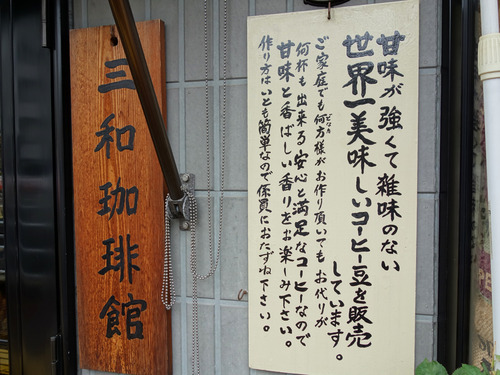 甘味が強くて雑味のない
世界一美味しいコーヒー豆を販売
しています。
ご家庭でも何方様がお作り頂いてもお代りが
どなた
何杯も出来る安心と満足なコーヒーなので
甘味と香ばしい香りをお楽しみ下さい。
作り方はいとも簡単なので係員におたずね下さい。
三和珈琲館